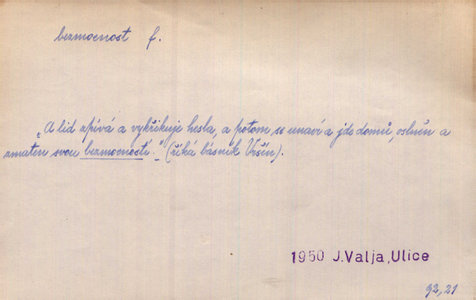 bezmocnost f.
„A lid zpívá a vykřikuje hesla, a potom se unaví a jde domů, oslněn a
zmaten svou bezmocností." (říká básník Vršín).
1950 J.Valja, Ulice
92, 21